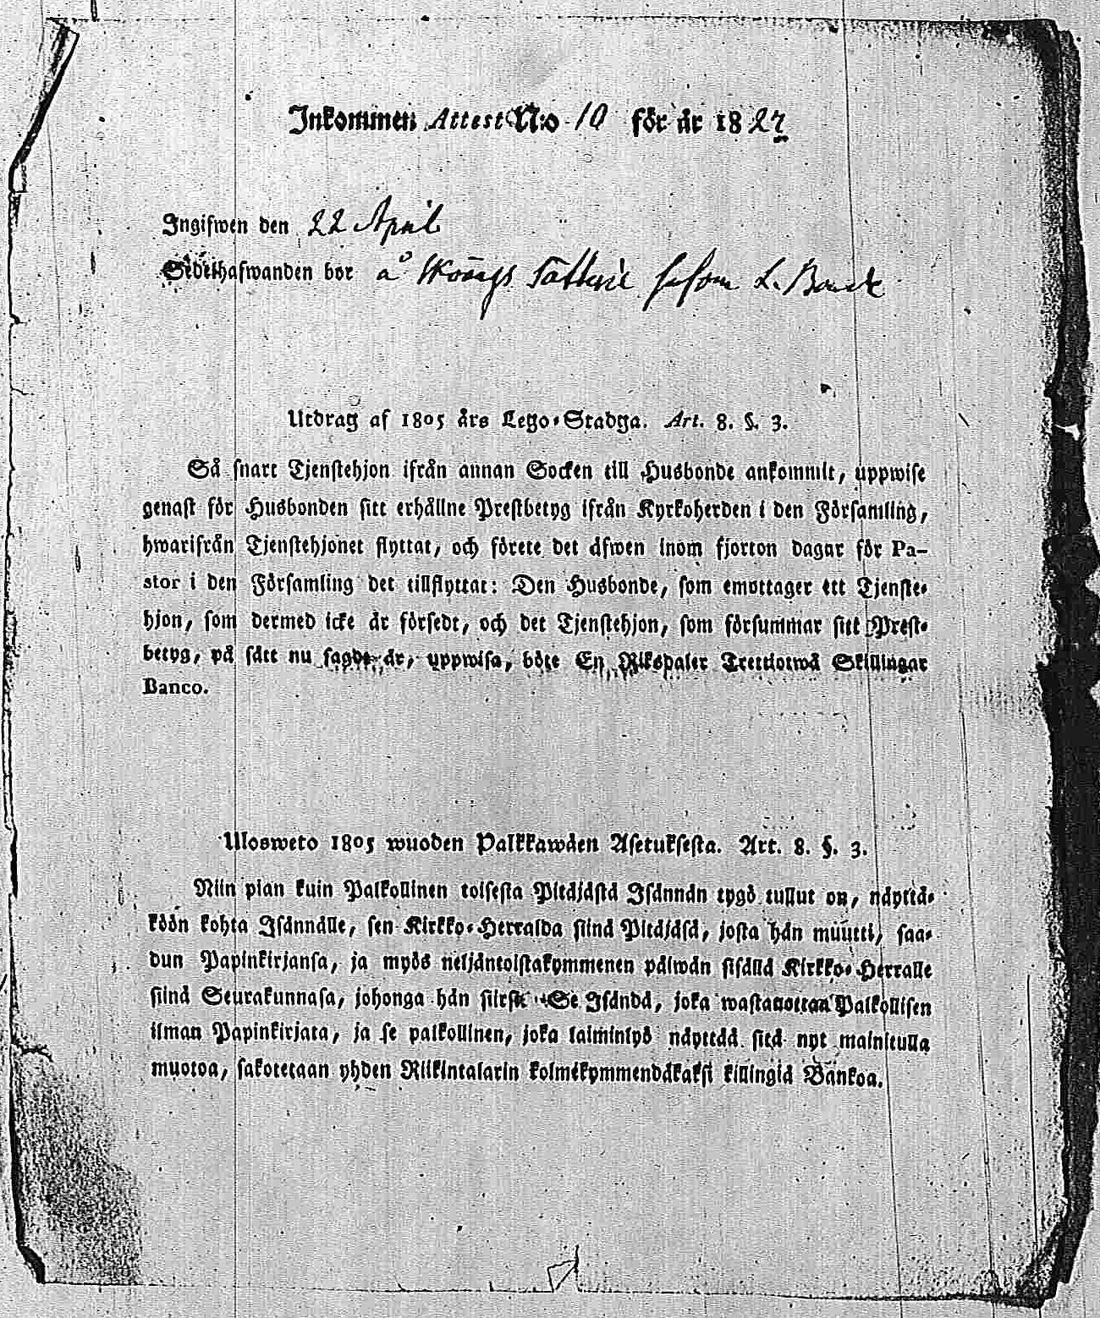 Inkommen Attest N:o 10 för år 1827
Ingifwen den 22 April
Sedelhafwanden bor å Sätterie såsom L. Bonde
Utdrag af 1805 års Lego-Stadga. Art. 8. §. 3.
Så snart Tjenstehjon ifrån annan Socken till Husbonde ankommit, uppwise
genast för Husbonden sitt erhållne Prestbetyg ifrån Kyrkoherden i den Församling,
hwarifrån Tjenstehjonet flyttat, och förete det äfwen inom fjorton dagar för Pa-
stor i den Församling det tillflyttat: Den Husbonde, som emottager ett Tjenste-
hjon, som dermed icke är försedt, och det Tjenstehjon, som försummar sitt Prest-
betyg, på sätt nu sagdt är, uppwisa, böte En Riksdaler Trettiotwå Skillingar
Banco.
Ulosweto 1805 wuoden Palkkawäen Asetuksesta. Art. 8. §. 3.
Niin pian kuin Palkollinen toisesta Pitäjästä Isännän tygö tullut on, näyttä-
köön kohta Isännälle, sen Kirkko-Herralda siinä Pitäjäsä, josta hän muutti, saa-
dun Papinkirjansa, ja myös neljäntoistakymmenen päiwän sisällä Kirkko-Herralle
siinä Seurakunnasa, johonga hän siirsi. Se Isändä, joka wastaanottaa Palkollisen
ilman Papinkirjata, ja se palkollinen, joka laiminlyö näyttää sitä nyt mainitulla
muotoa, sakotetaan yhden Riikintalarin kolmekymmendäkaksi killingiä Bankoa.